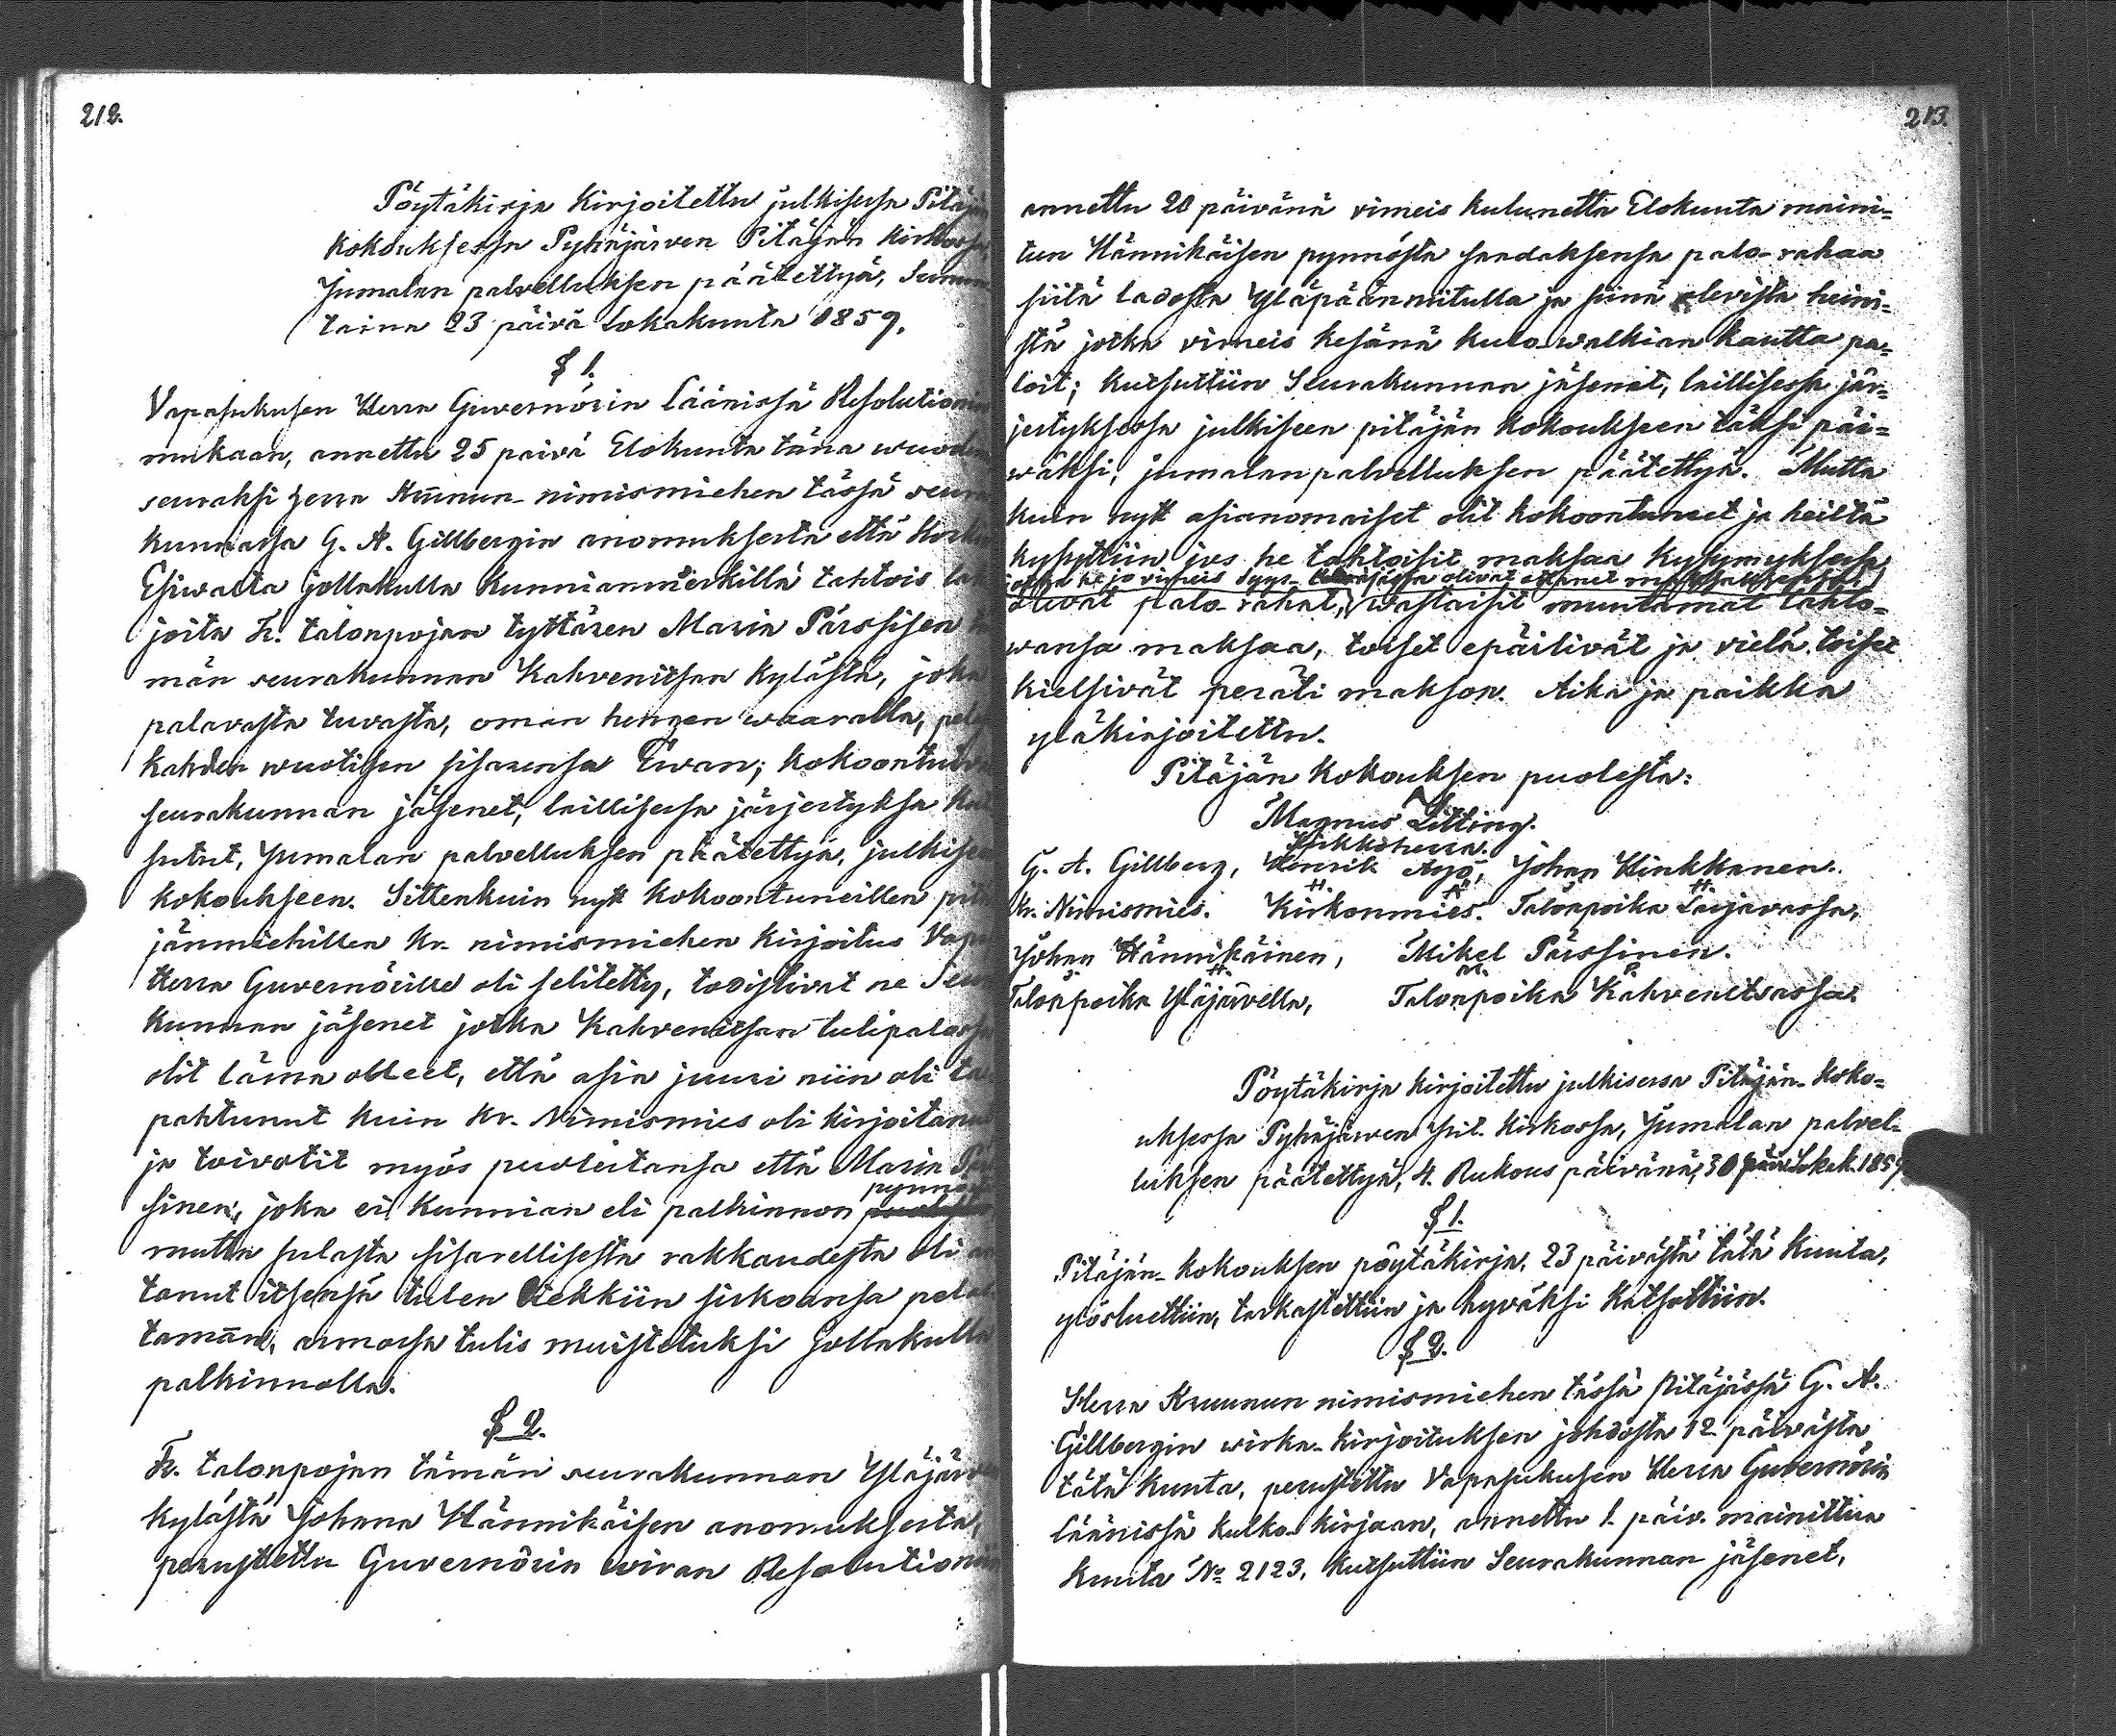 212.
Pöytäkirja Kirjoitettu julkisessa Pitäjän
Kokouksessa Pyhäjärven Pitäjän Kirkossa,
Jumalan palvelluksen päätettyä, Sunnun
taina 23 päivä Lokakunta 1859.
§ 1.
Vapasukusen Herra Guvernörin Läänissä Resolutionin
mukaan, annettu 25 päivä Elokunta täna wuodena
seuraksi herra Krunun-nimismiehen tässä seura
kunnassa G. A. Gillbergin anomuksesta että Korkia
Esiwalta jollakulla Kunnianmerkillä tahtois lah
joita Fr. talonpojan tyttären Maria Pärssisen tä
män seurakunnan Kahvenitsan Kylästä, joka
palavasta tuvasta, oman hengen waaralla, pelasti
kahden wuotisen sisarensa Ewan; kokoontuivat
seurakunnan jäsenet, laillisessa järjestyksä kut
sutut, Jumalan palvelluksen päätettyä, julkiseen
kokoukseen. Sittenkuin nytt kokoontuneillen pitä
jänmiehillen Kr. nimismiehen kirjoitus Vapas
Herra Guvernörille oli selitetty, todistivat ne Seura
kunnan jäsenet jotka Kahvenitsan tulipalossa
olit läsna olleet, että asia juuri niin oli ta
pahtunut kuin Kr. Nimismies oli kirjoitanut
ja toivotit myös puolestansa että Maria Pärs
sinen, joka ei kunnian eli palkinnon pynnöstä
mutta sulasta sisarellisesta rakkaudesta oli an
tanut itsensä tulen liekkiin siskoansa pelas
tamān, armossa tulis muistetuksi jollakulla
palkinnolla.
§ 2.
Fr. talonpojan tämän seurakunnan Yläjärven
Kylästä Johana Hännikäisen anomuksesta,
perustettu Guvernörin wiran Resolutioniin
213.
annettu 20 päivänä vimeis kulunetta Elokunta maini-
tun Hännikäisen pynnöstä saadaksensa palo-rahaa
siitä ladosta Yläpään niitulla ja siinä olevista heini-
stä jotka vimeis kesänä kulo-walkian kautta pa-
loit; kutsuttiin Seurakunnan jäsenet, laillisessa jär-
jestyksessa julkiseen pitäjän kokoukseen täksi päi-
wäksi, jumalanpalvelluksen päätettyä. Mutta
kuin nytt asianomaiset olit kokoontuneet ja heiltä
kysyttiin jos he tahtoisit maksaa kysymyksessa
jotka he jo vimeis syys- olivat ottanet maksaaksensa
olevat palo-rahat, wastaisit muutamat tahto-
wansa maksaa, toiset epäilivät ja vielä toiset
kielsivät peräti makson. Aika ja paikka
yläkirjoitettu.
Pitäjän Kokouksen puolesta:
Magnus Litting.
Kirkkoherra.
G. A. Gillberg, Henrik Äyö, Johan Hinkkanen.
Kr. Nimismies. Kirkonmies. Talonpoika
Johan Hännikäinen, Mikel Pärssinen.
Talonpoika Yläjärvella, Talonpoika Kahvenitsassa.
Pöytäkirja kirjoitettu julkisessa Pitäjän-Koko-
uksessa Pyhäjärwen Pit. Kirkossa, Jumalan palvel-
luksen päätettyä, 4. Rukous päivänä, 30 päiv. Lokak. 1859.
§ 1.
Pitäjän-kokouksen pöytäkirja, 23 päivästä tätä kunta,
ylösluettiin, tarkastettiin ja hyväksi katsottiin.
§ 2.
Herra Kruunun nimismiehen tässä pitäjässä G. A.
Gillbergin wirka-kirjoituksen johdosta 12 päivästa
tätä kunta, perustettu Vapasukusen Herra Guvernörin
läänissä kulko-kirjaan, annettu 1. päiv. mainittua
kunta No 2123, kutsuttiin Seurakunnan jäsenet,